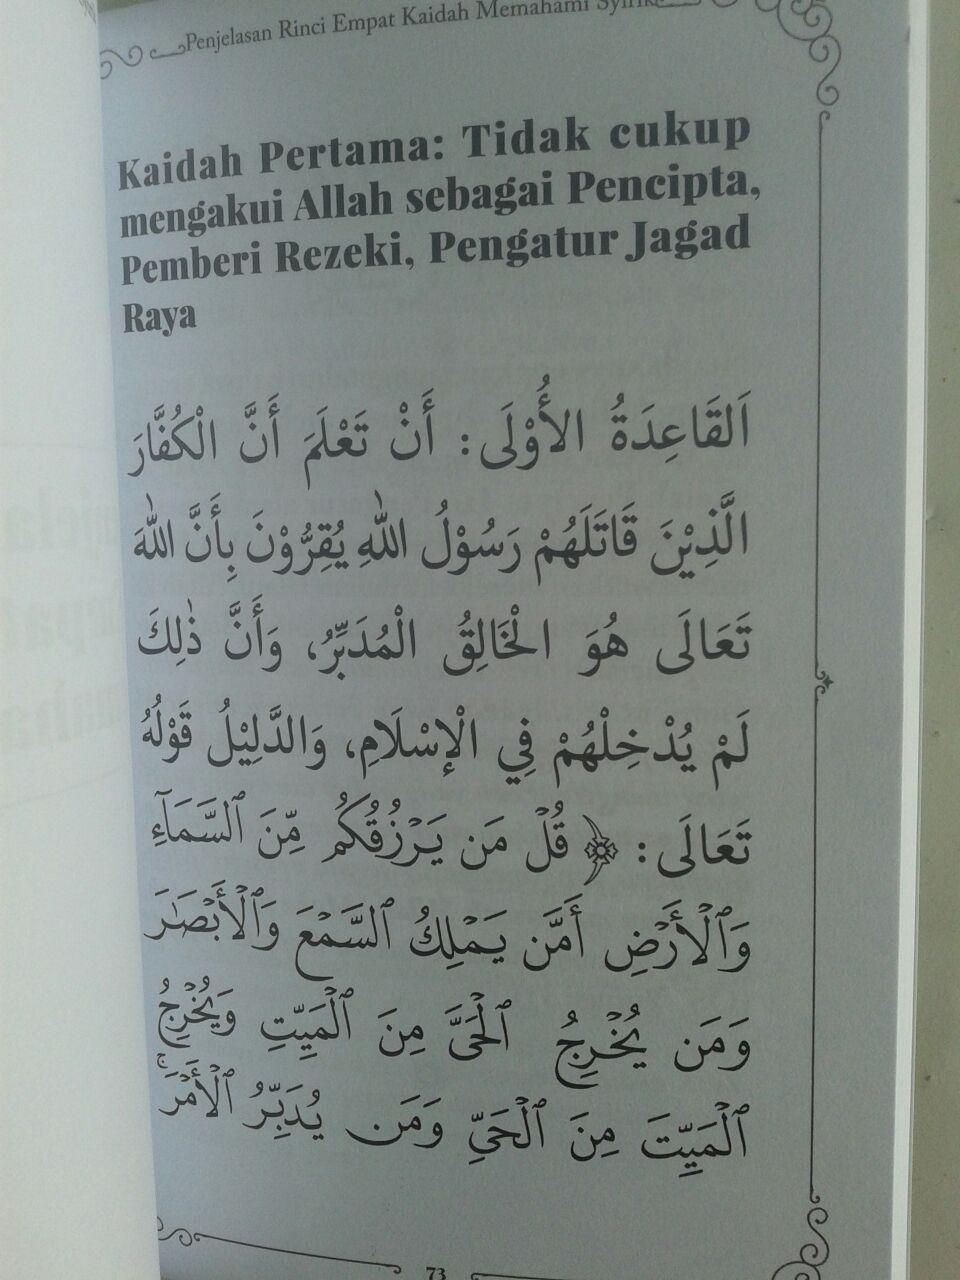 Penjelasan Rinci Empat Kaidah Memahami Syirik
Kaidah Pertama: Tidak cukup
mengakui Allah sebagai Pencipta,
Pemberi Rezeki, Pengatur Jagad
Raya
اَلقَاعِدَةُ الأُوْلَى: أَنْ تَعْلَمَ أَنَّ الْكُفَّارَ
الَّذِيْنَ قَاتَلَهُمْ رَسُوْلُ اللهِ يُقِرُّوْنَ بِأَنَّ اللهَ
تَعَالَى هُوَ الْخَالِقُ الْمُدَبِّرُ، وَأَنَّ ذٰلِكَ
لَمْ يُدْخِلْهُمْ فِي الْإِسْلَامِ، وَالدَّلِيْلُ قَوْلُهُ
تَعَالَى: ﴿ قُلْ مَن يَرْزُقُكُم مِّنَ ٱلسَّمَآءِ
وَٱلْأَرْضِ أَمَّن يَمْلِكُ ٱلسَّمْعَ وَٱلْأَبْصَٰرَ
وَمَن يُخْرِجُ ٱلْحَىَّ مِنَ ٱلْمَيِّتِ وَيُخْرِجُ
ٱلْمَيِّتَ مِنَ ٱلْحَيِّ وَمَن يُدَبِّرُ ٱلْأَمْرَ ۚ
73